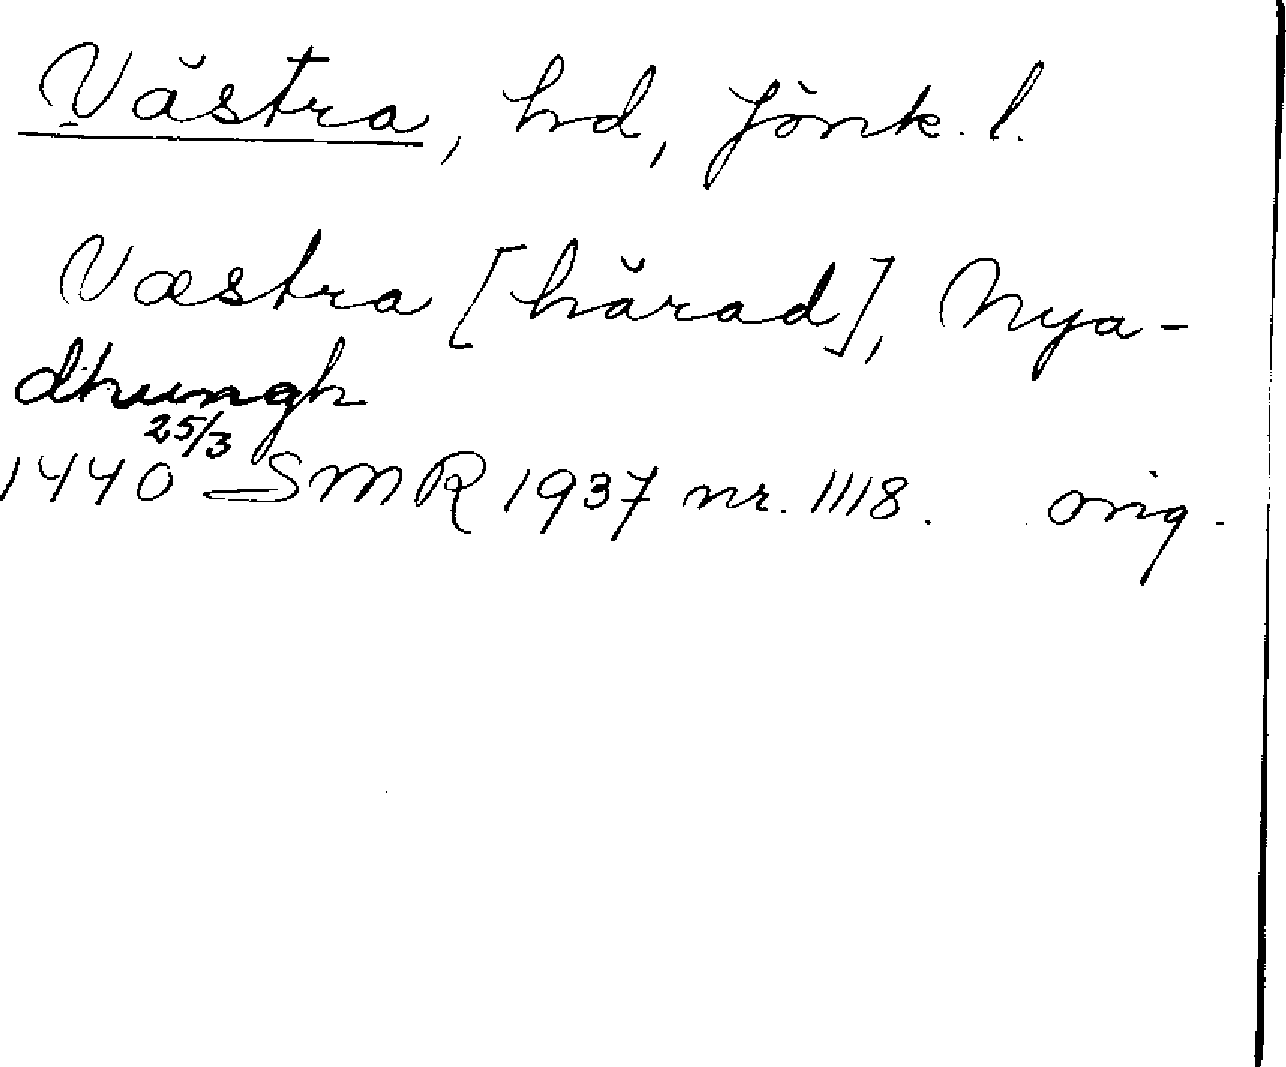 Västra, hd, Jönk. l.
Væstra [härad], Nya-
dhungh
1440 25/3 SMR 1937 nr. 1118. orig.